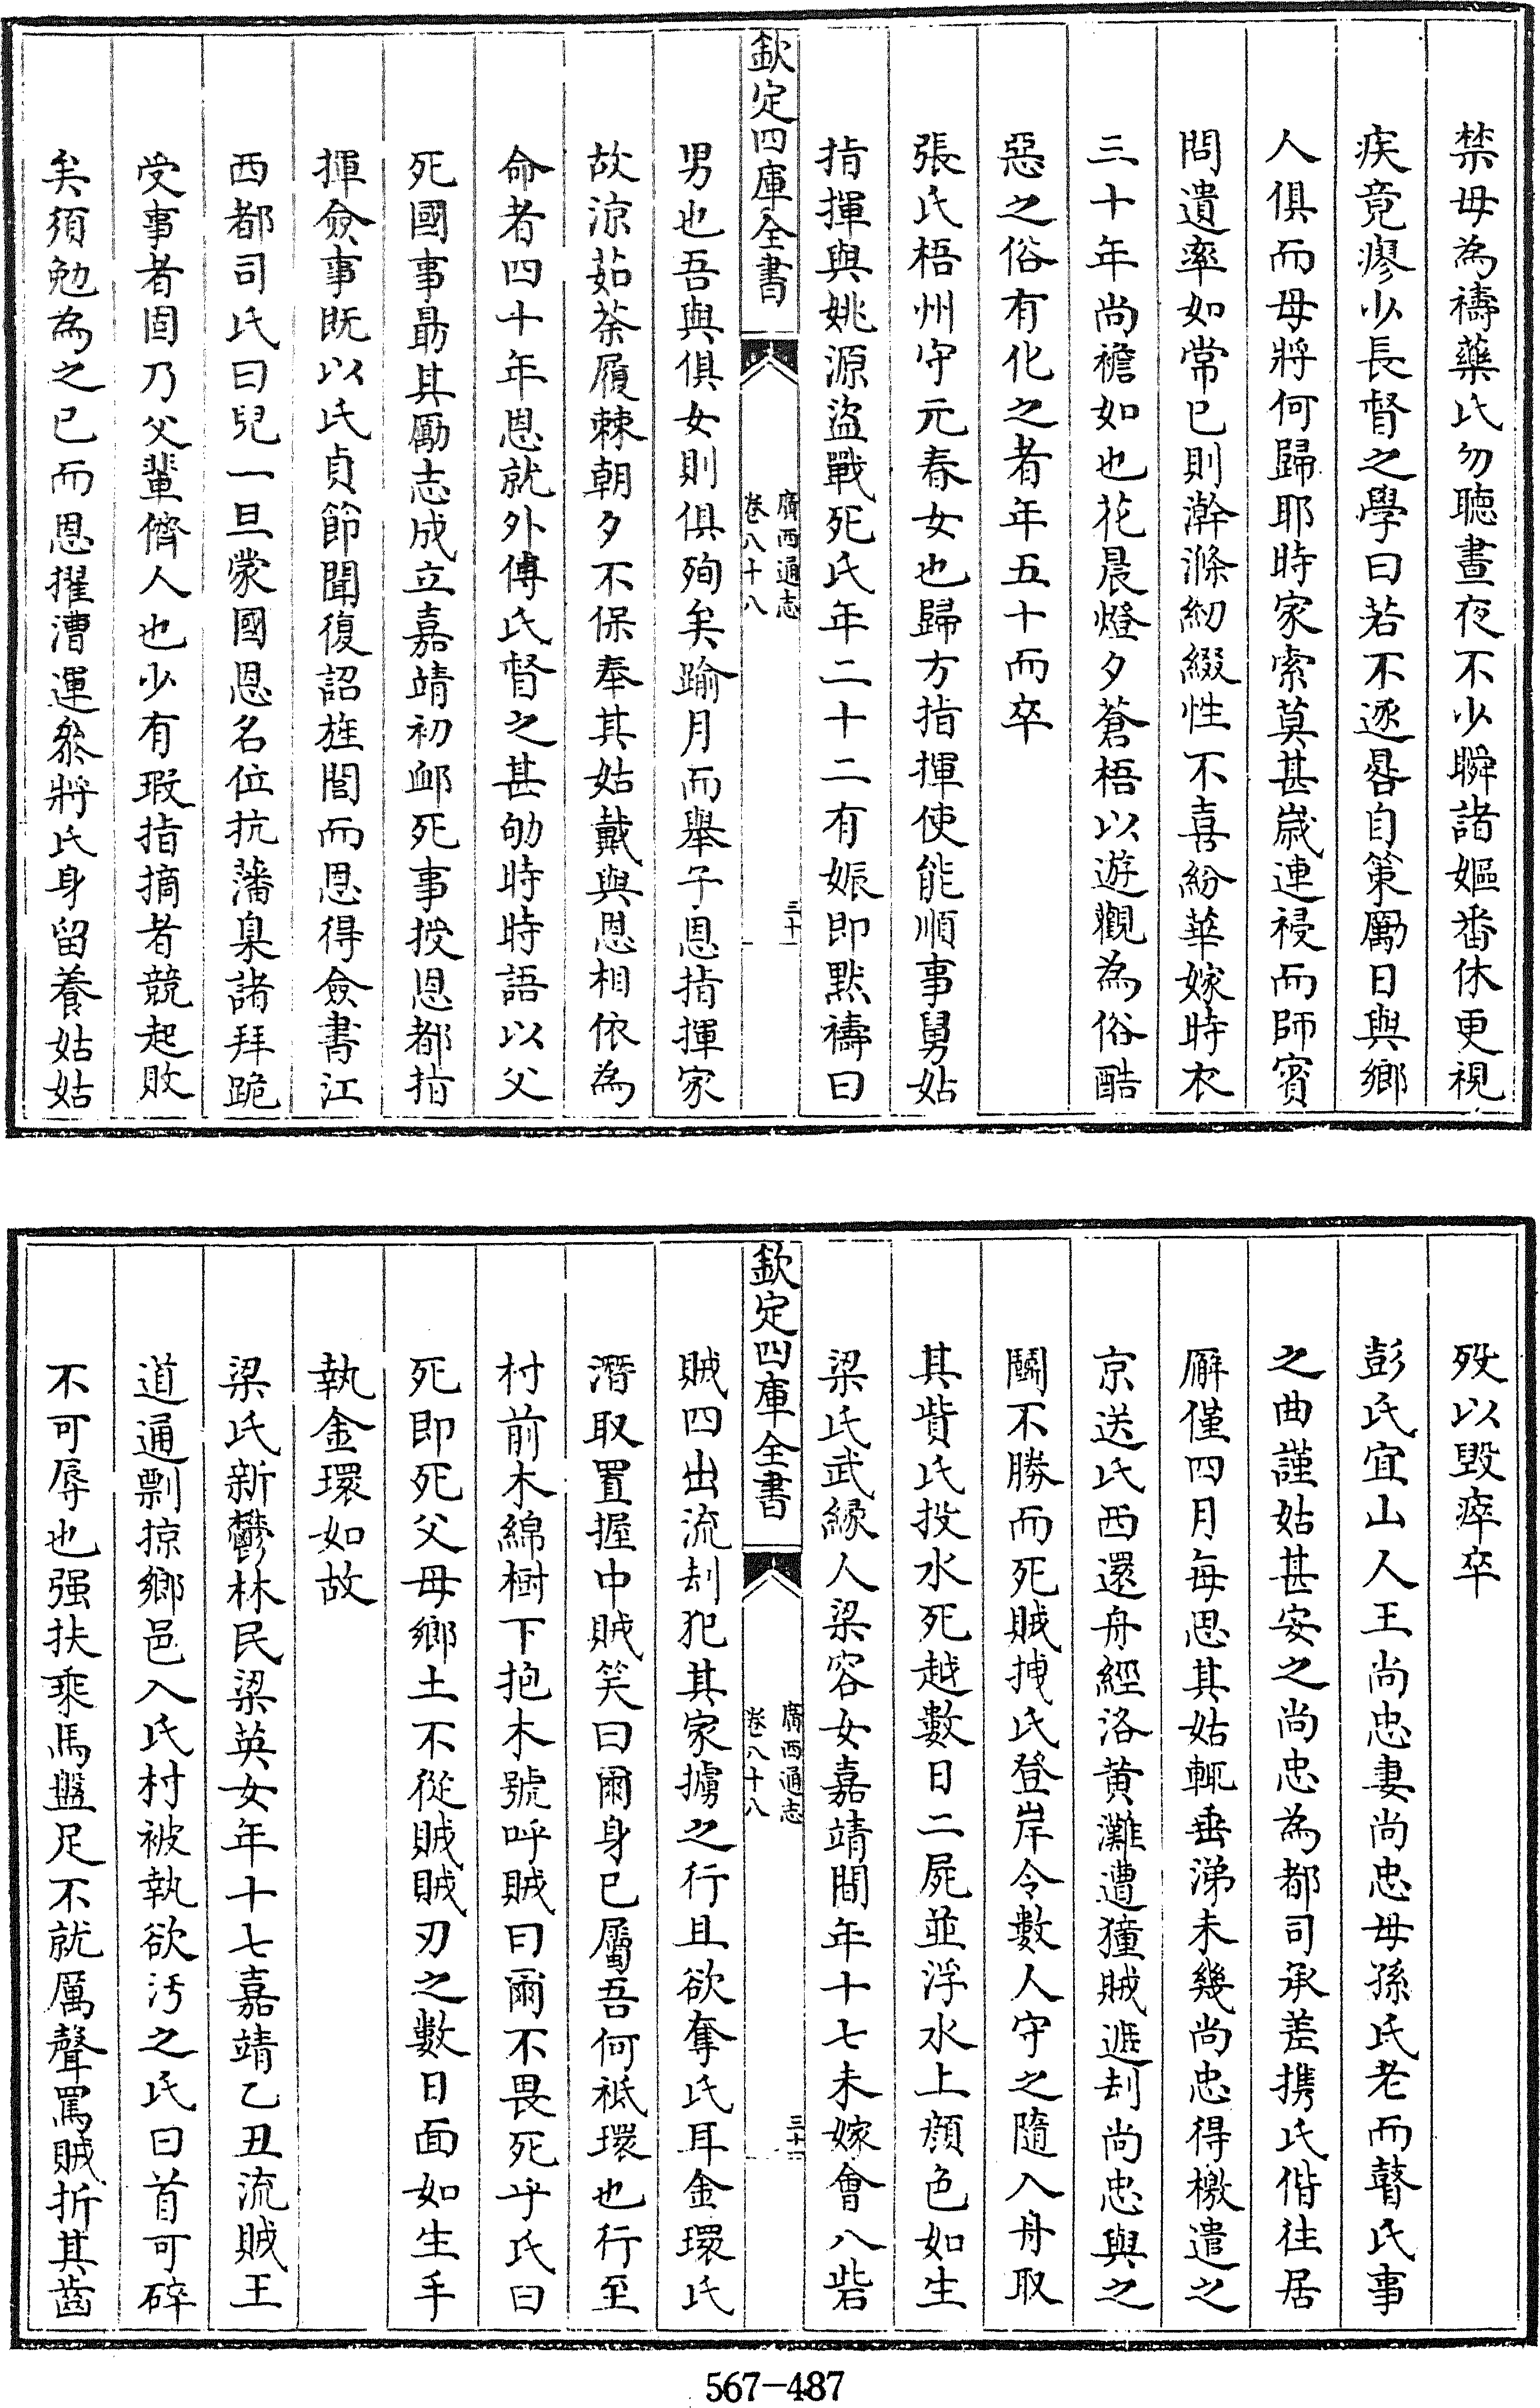 禁毋為禱藥氏勿聽晝夜不少瞬諸嫗番休更視
疾竟瘳少長督之學曰若不逐晷自策厲日與鄉
人俱而母將何歸耶時家索莫甚歲連祲而師賓
問遺率如常已則澣滌紉綴性不喜紛華嫁時衣
三十年尚襜如也花晨燈夕蒼梧以遊觀為俗酷
惡之俗有化之者年五十而卒
張氏梧州守元春女也歸方指揮使能順事舅姑
指揮與姚源盜戰死氏年二十二有娠即默禱曰
欽定四庫全書
廣西通志
卷八十八
三十一
男也吾與俱女則俱殉矣踰月而舉子恩指揮家
故涼茹荼履棘朝夕不保奉其姑戴與恩相依為
命者四十年恩就外傅氏督之甚劬時時語以父
死國事勗其勵志成立嘉靖初卹死事授恩都指
揮僉事既以氏貞節聞復詔旌閭而恩得僉書江
西都司氏曰兒一旦蒙國恩名位抗藩臬諸拜跪
受事者固乃父輩儕人也少有瑕指摘者競起敗
矣須勉為之已而恩擢漕運叅將氏身留養姑姑
歿以毀瘁卒
彭氏宜山人王尚忠妻尚忠母孫氏老而瞽氏事
之曲謹姑甚安之尚忠為都司承差携氏偕往居
廨僅四月每思其姑輒垂涕未幾尚忠得檄遣之
京送氏西還舟經洛黄灘遭獞賊遮刦尚忠與之
鬭不勝而死賊拽氏登岸令數人守之隨入舟取
其貲氏投水死越數日二屍並浮水上顔色如生
梁氏武緣人梁容女嘉靖間年十七未嫁會八砦
欽定四庫全書
廣西通志
卷八十八
三十一
賊四出流刦犯其家擄之行且欲奪氏耳金環氏
潛取置握中賊笑曰爾身已屬吾何祗環也行至
村前木綿樹下抱木號呼賊曰爾不畏死乎氏曰
死即死父母鄉土不從賊賊刃之數日面如生手
執金環如故
梁氏新鬱林民梁英女年十七嘉靖乙丑流賊王
道通剽掠鄉邑入氏村被執欲汚之氏曰首可碎
不可辱也强扶乘馬盤足不就厲聲罵賊折其齒
567-487